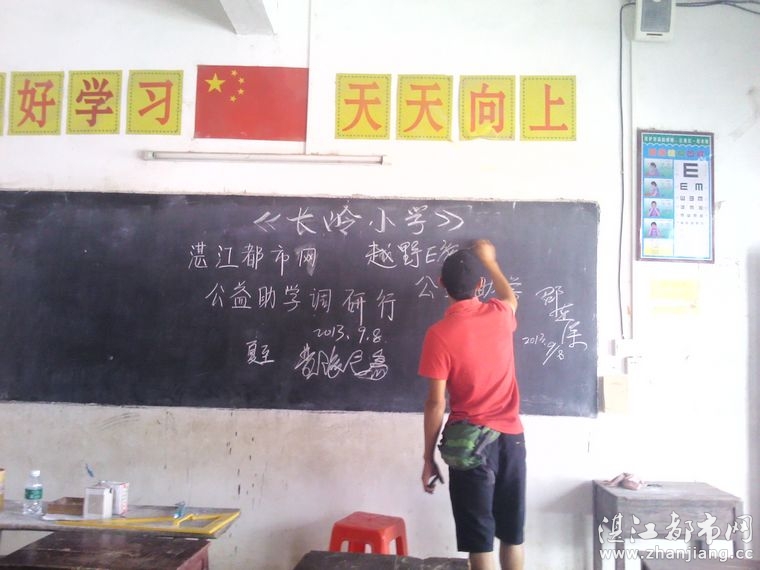 好学习 天天向上
《长岭小学》
湛江都市网 越野E族
公益助学调研行 公
2013.9.8.
夏至
2013.9/8
E
湛江都市网
www.zhanjiang.cc